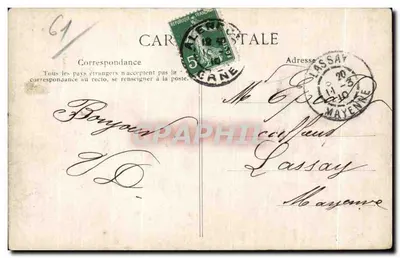 61
CARTE POSTALE
Correspondance
Tous les pays étrangers n'acceptent pas la
correspondance au recto, se renseigner à la poste.
Adresse
5
LASSAY
20
10
MAYENNE
M
coiffeur
Lassay
Mayenne
Bonjour